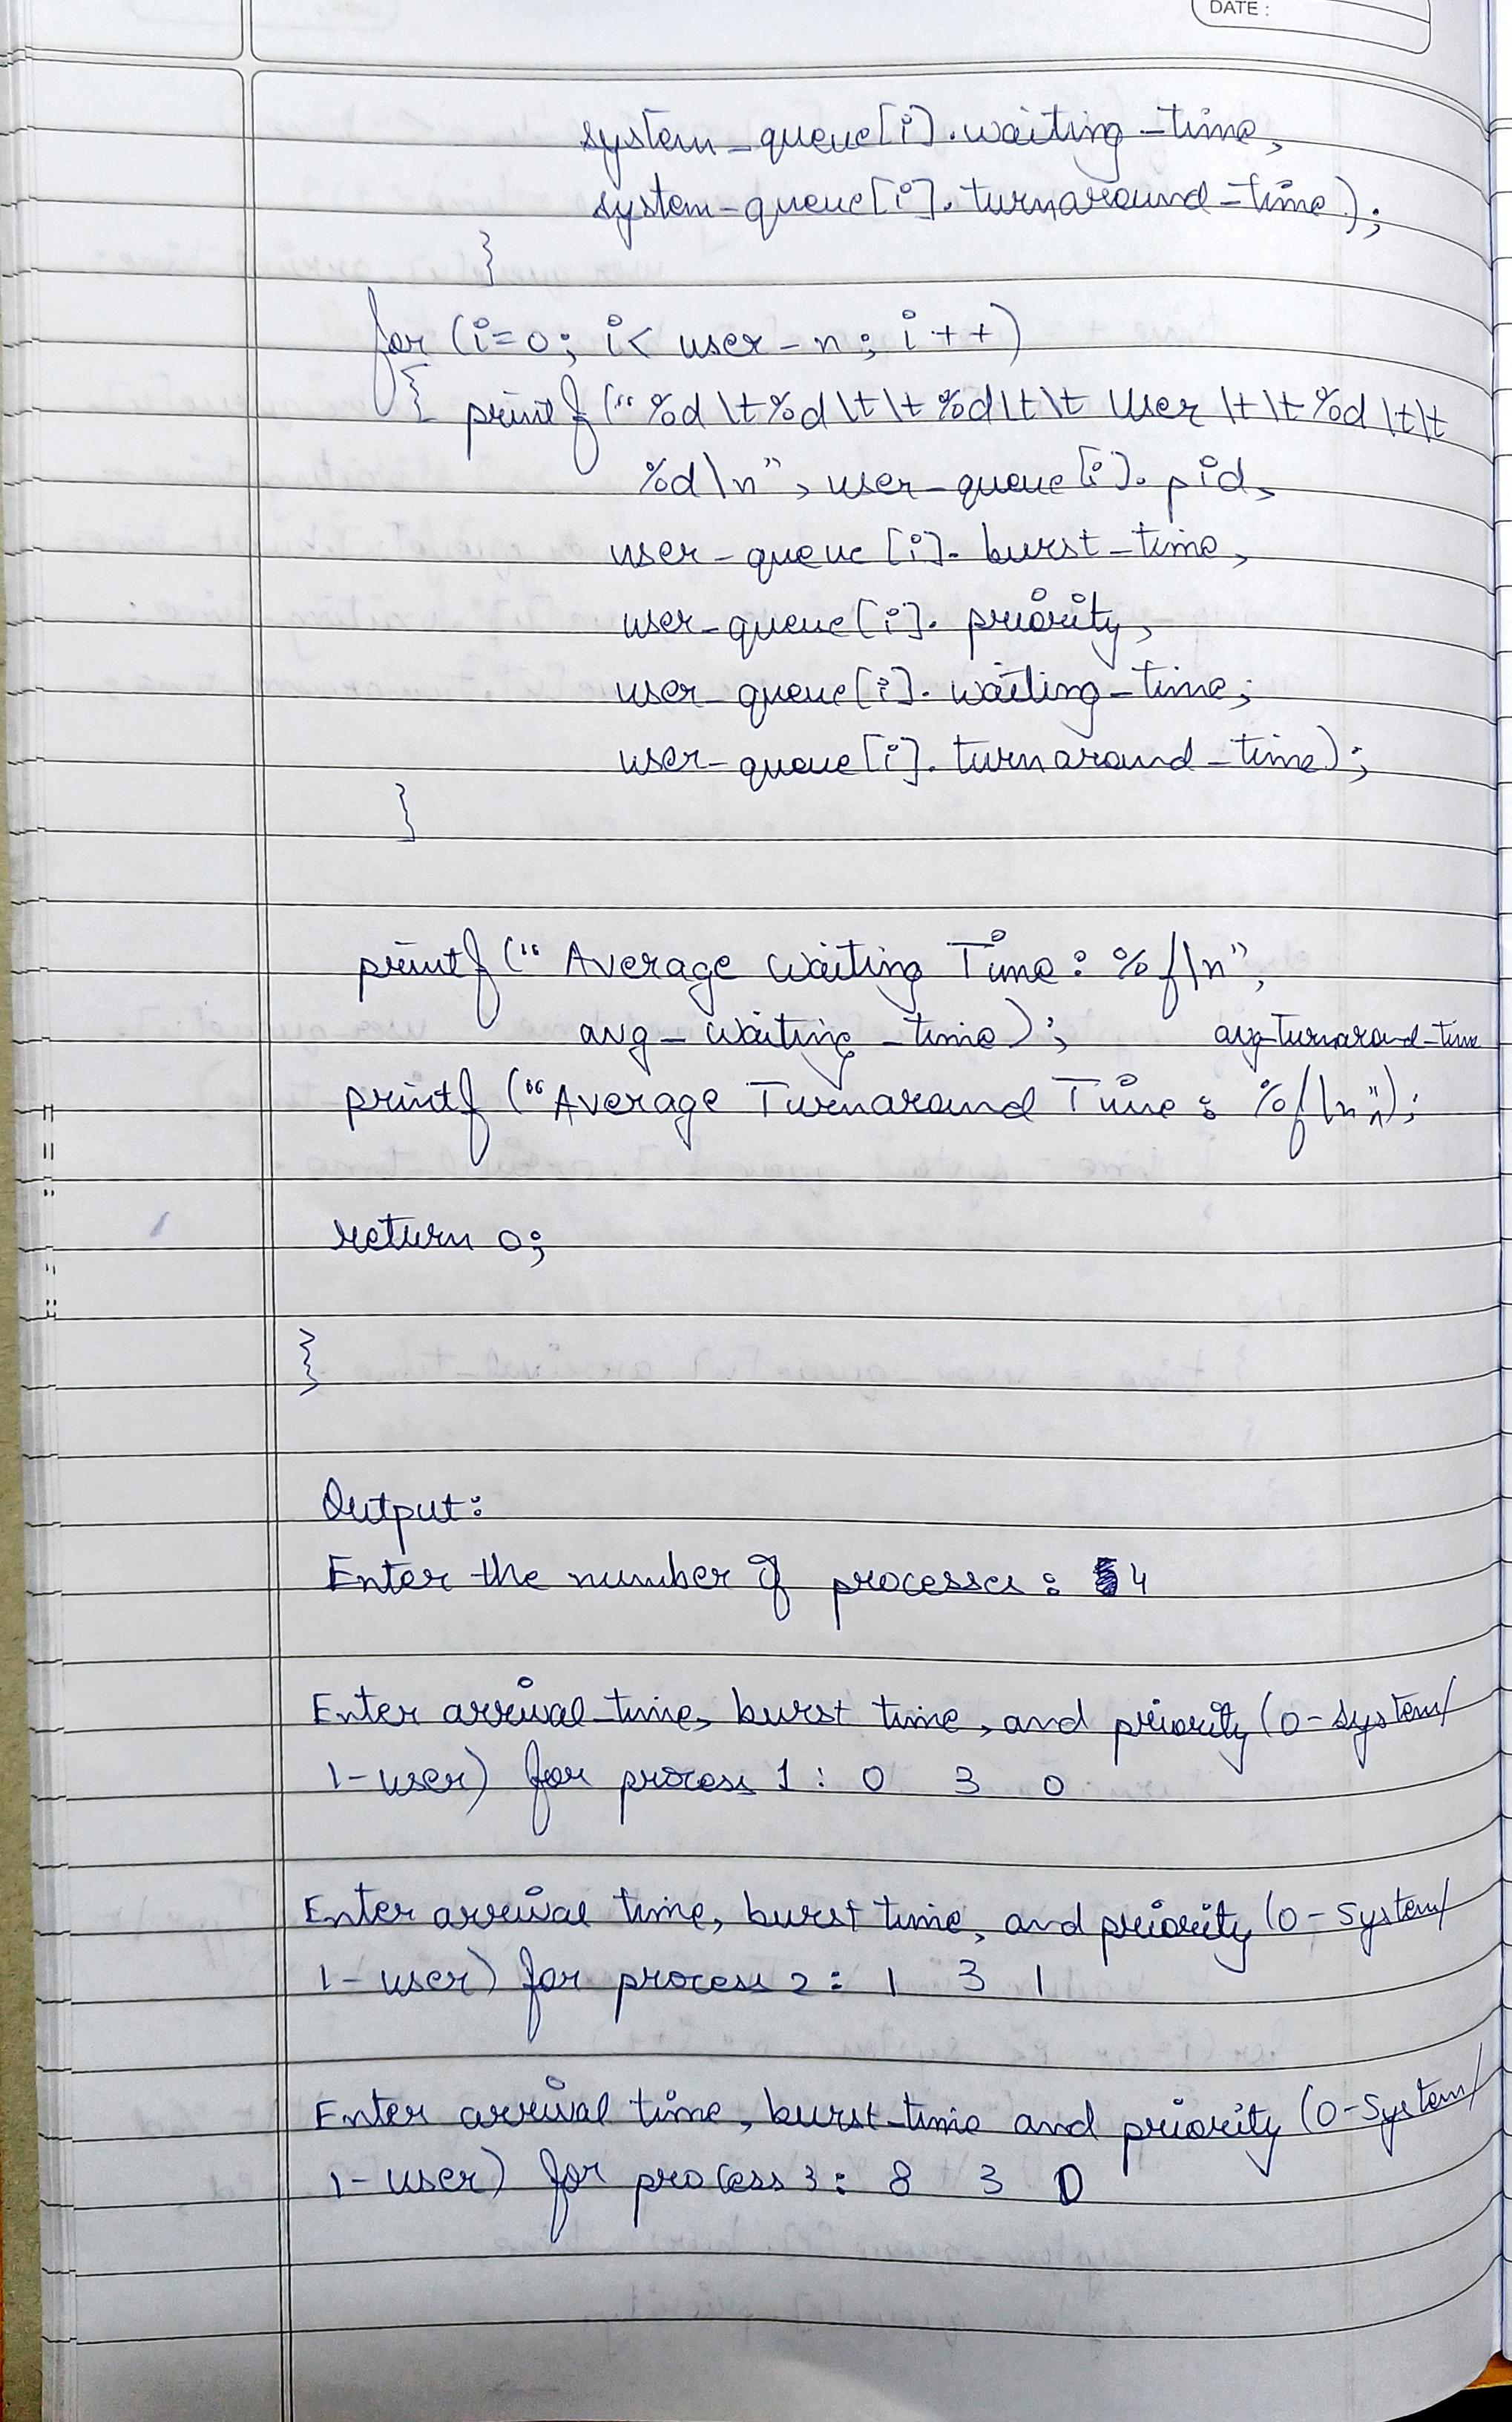 DATE :
system_queue[i].waiting_time,
system_queue[i].turnaround_time);
}
for (i=0; i< user_n; i++)
{ printf ("%d \t%d \t\t %d\t\t User \t\t %d \t\t
%d\n", user_queue[i].pid,
user_queue[i].burst_time,
user_queue[i].priority,
user_queue[i].waiting_time;
user_queue[i].turnaround_time);
}
printf (" Average Waiting Time : %f\n",
avg_waiting_time);
avg_turnaround_time
printf ("Average Turnaround Time : %f\n",^);
return 0;
}
Output:
Enter the number of processes : 4
Enter arrival time, burst time, and priority (0-system/
1-user) for process 1 : 0 3 0
Enter arrival time, burst time, and priority (0-system/
1-user) for process 2 : 1 3 1
Enter arrival time, burst time and priority (0-System/
1-user) for process 3 : 8 3 0